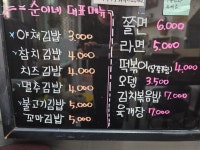 ==순이네 대표메뉴
*야채김밥 3,000
*참치김밥 4,000
치즈김밥 4,000
멸추김밥 4,000
불고기김밥 5,000
꼬마김밥 5,000
쫄면 6,000
라면 5,000
떡볶이 4,000
오뎅 3,500
김치볶음밥 7,000
육개장 7,000